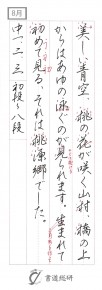 8月
美しい青空、桃の花が咲く山村、橋の上
からはあゆの泳ぐのが見えます。生まれて
初めて見る、それは桃源郷でした。
中一・二・三 初段〜八段
書道総研